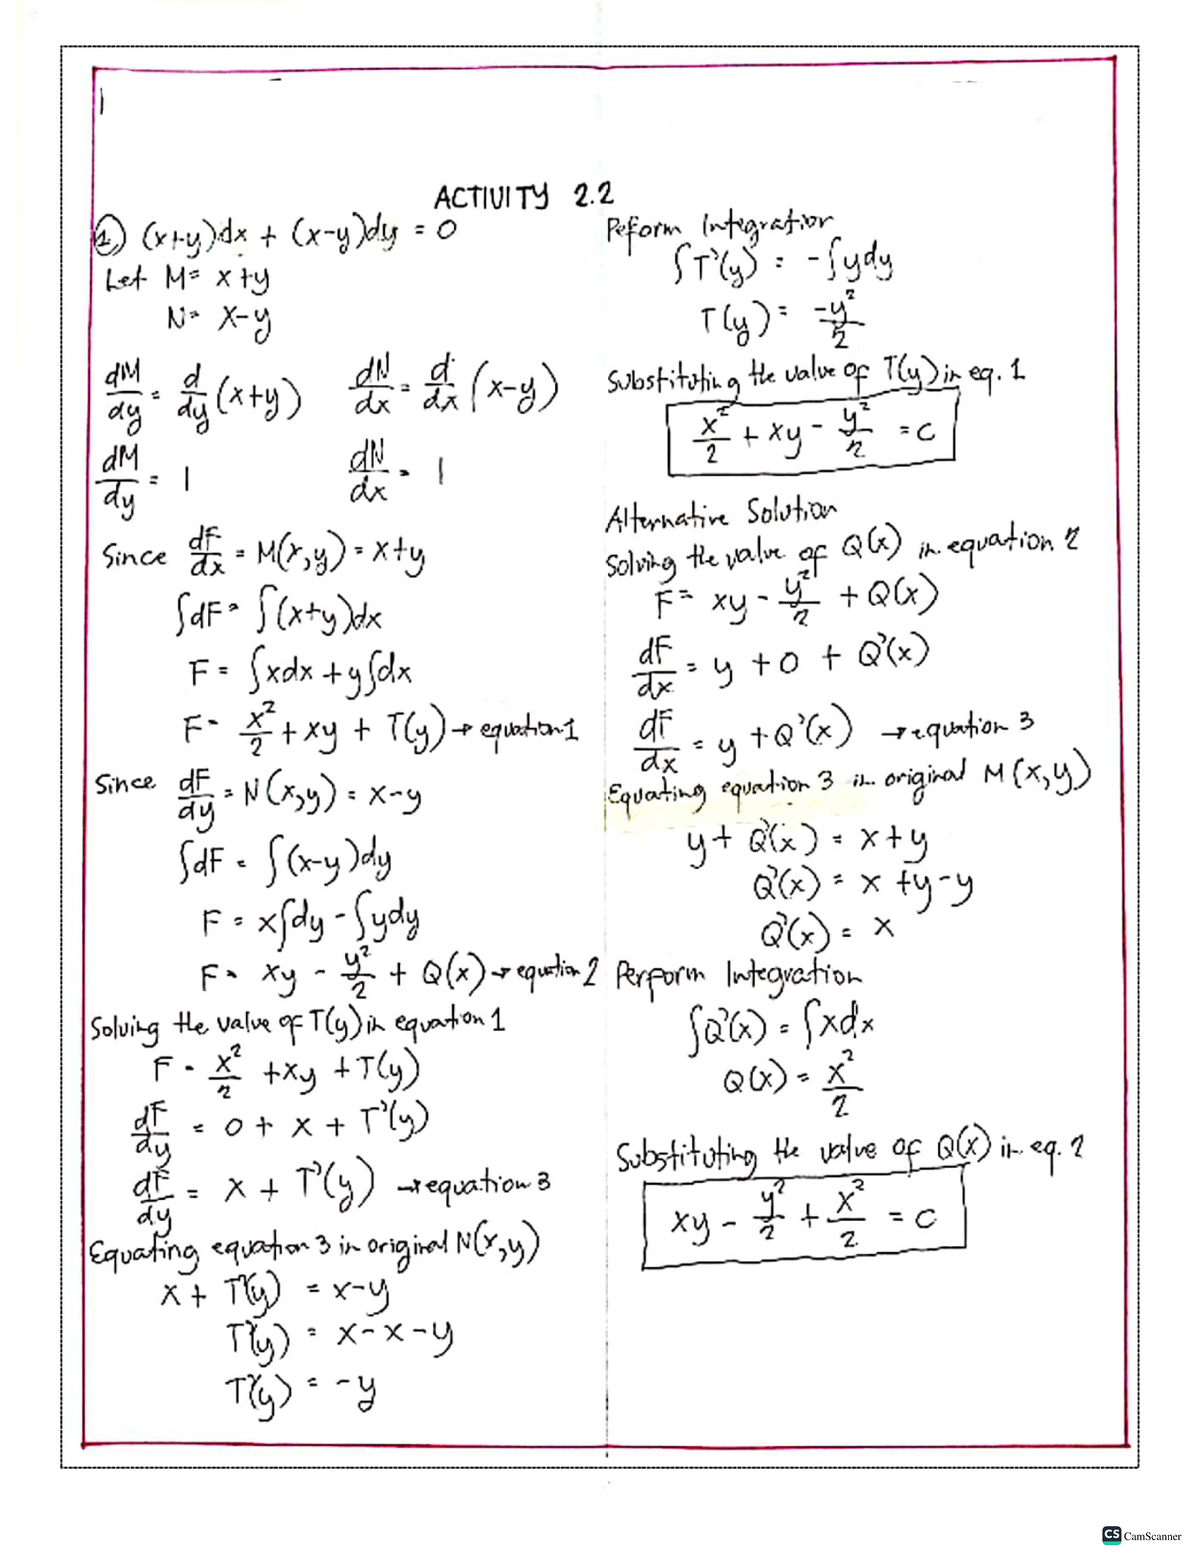 ACTIVITY 2.2
1) (x+y)dx + (x-y)dy = 0
Let M = x+y
N = x-y
dM/dy = d/dy (x+y)    dN/dx = d/dx (x-y)
dM/dy = 1    dN/dx = 1
Since dF/dx = M(x,y) = x+y
∫dF = ∫(x+y)dx
F = ∫xdx + y∫dx
F = x²/2 + xy + T(y) → equation 1
Since dF/dy = N(x,y) = x-y
∫dF = ∫(x-y)dy
F = x∫dy - ∫ydy
F = xy - y²/2 + Q(x) → equation 2
Solving the value of T(y) in equation 1
F = x²/2 + xy + T(y)
dF/dy = 0 + x + T'(y)
dF/dy = x + T'(y) → equation 3
Equating equation 3 in original N(x,y)
x + T'(y) = x-y
T'(y) = x-x-y
T'(y) = -y
Peform Integration
∫T'(y) = -∫ydy
T(y) = -y²/2
Substituting the value of T(y) in eq. 1
x²/2 + xy - y²/2 = c
Alternative Solution
Solving the value of Q(x) in equation 2
F = xy - y²/2 + Q(x)
dF/dx = y + 0 + Q'(x)
dF/dx = y + Q'(x) → equation 3
Equating equation 3 in original M(x,y)
y + Q'(x) = x+y
Q'(x) = x+y-y
Q'(x) = x
Perform Integration
∫Q'(x) = ∫xdx
Q(x) = x²/2
Substituting the value of Q(x) in eq. 2
xy - y²/2 + x²/2 = c
CS CamScanner